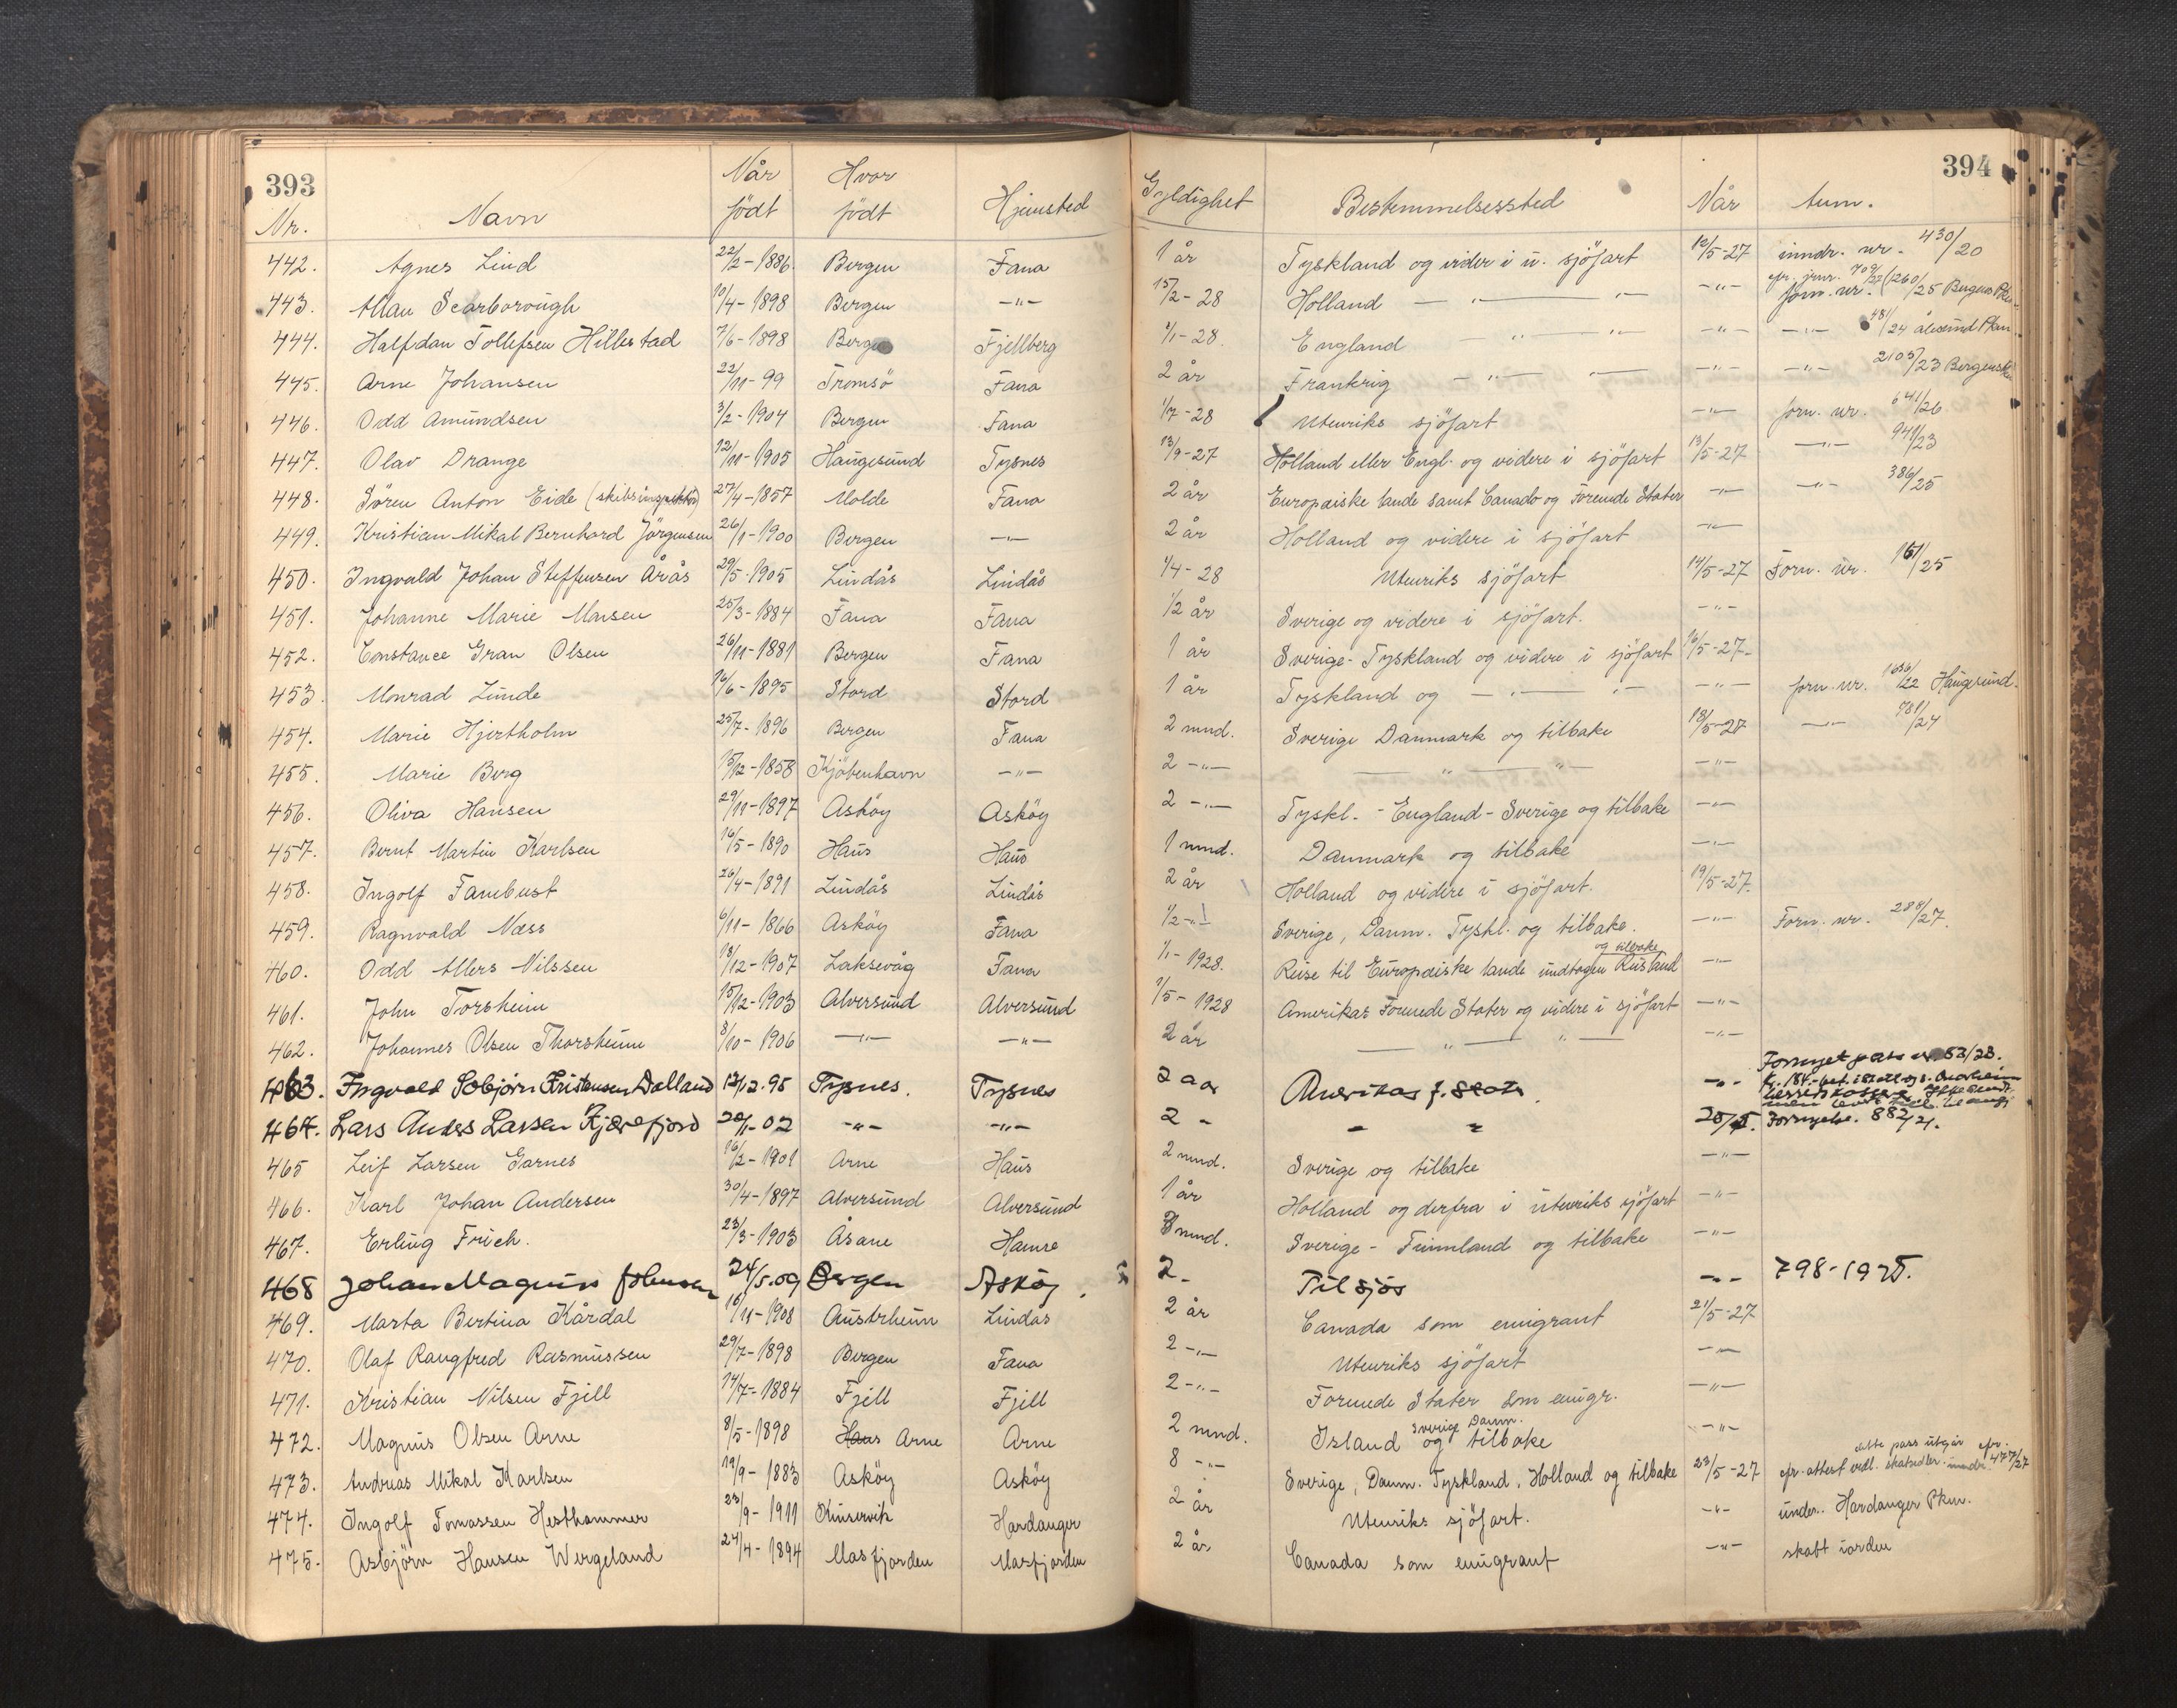 393
394
Nr. Navn Når født Hvor født Hjemsted Gyldighet Bestemmelsessted Når Anm.
442. Agnes Lind 22/2-1886. Bergen Fana 1 år Tyskland og videre i u. sjöfart 12/5-27 inndr. nr. 430/20
443. Allan Scarborough 10/4-1898 Bergen -"- 15/2-28 Holland -"- -"- -"- forn. nr. 1260/25 Bergens Pkm
444. Halfdan Tollefsen Hillestad 7/6-1898 Bergen Fjellberg 1/1-28. England -"- -"- -"- -"- 481/24 Ålesund Pkm.
445. Arne Johansen 22/11-99 Tromsö Fana 2 år Frankrig -"- -"- -"- -"- 2105/23 Bergenske
446. Odd Amundsen 3/2-1904 Bergen Fana 1/7-28 Utenriks sjöfart -"- forn. nr. 641/26
447. Olav Drange 12/11-1905 Haugesund Tysnes 13/9-27 Holland eller Engl. og videre i sjöfart 13/5-27 -"- 941/23
448. Sören Anton Eide (skibsinspektör) 27/4-1857 Molde Fana 2 år Europæiske lande samt Canada og Forenede Stater -"- -"- 386/25
449. Kristian Mikal Bernhard Jörgensen 26/1-1900 Bergen -"- 2 år Holland og videre i sjöfart -"-
450. Ingvald Johan Steffensen Årås 29/5-1905 Lindås Lindås 1/4-28 Utenriks sjöfart 14/5-27 Forn. nr. 161/25
451. Johanne Marie Monsen 25/3-1884 Fana Fana 1/2 år Sverige og videre i sjöfart. -"-
452. Constance Gran Olsen 26/11-1881 Bergen Fana 1 år Sverige-Tyskland og videre i sjöfart 16/5-27-
453. Monrad Linde 16/6-1895 Stord Stord 1 år Tyskland og -"- "- -"- forn. nr. 1636/22 Haugesund.
454. Marie Hjertholm 25/7-1896 Bergen Fana 2 mnd. Sverige Danmark og tilbake 18/5-27 -"- 781/24
455. Marie Berg 15/12-1858 Kjöbenhavn -"- 2 -"- -"- -"- -"-
456. Oliva Hansen 29/11-1897 Asköy Asköy 2 -"- Tyskl. - England - Sverige og tilbake -"-
457. Bernt Martin Karlsen 16/5-1890 Haus Haus 1 mnd. Danmark og tilbake -"-
458. Ingolf Fambust 26/4-1891 Lindås Lindås 2 år Holland og videre i sjöfart. 19/5-27.
459. Ragnvald Næss 6/11-1866 Asköy Fana 1/2 -"- Sverige, Danm. Tyskl. og tilbake. -"- Forn. nr. 288/27.
460. Odd Allers Nilssen 18/12-1907 Laksevåg Fana 1/1-1928. Reise til Europæiske lande undtagen Rusland og tilbake -"-
461. John Torsheim 15/12-1903 Alversund Alversund 1/5-1928 Amerikas Forenede Stater og videre i sjöfart -"-
462. Johannes Olsen Thorsheim 8/10-1906 -"- -"- 2 år -"- -"- -"-
463. Ingvald Sobjörn Kristensen Dalland 12/12.95 Tysnes. Tysnes 2 aar Amerikas f. Stater. -"- Fornyet pass nr. 53/23.
464. Lars Anders Larsen Kjærefjord 20/1-02 -"- -"- 2 - - " 20/5. Fornyelse. 882/21.
465 Leif Larsen Garnes 16/2-1901 Arne Haus 2 mnd. Sverige og tilbake -"-
466. Karl Johan Andersen 30/4-1897 Alversund Alversund 1 år Holland og derfra i utenriks sjöfart -"-
467. Erling Frich. 23/3-1903 Åsane Hamre 8 mnd. Sverige - Finnland og tilbake -"-
468 Johan Magnus Johnsen 24/5.09 Bergen Asköy. 2- Tilsjös -"- 798-1925.
469. Marta Bertina Kårdal 16/11-1908 Austrheim Lindås 2 år Canada som emigrant 21/5-27
470. Olaf Rangfred Rasmussen 29/7-1898 Bergen Fana 2 -"- Utenriks sjöfart -"-
471. Kristian Nilsen Fjell 14/7-1884 Fjell Fjell 2 -"- Forenede Stater som emigr. -"-
472. Magnus Olsen Arne 8/5-1898 Haus Arne Arne 2 mnd. Island Sverige Danm. og tilbake -"-
473. Andreas Mikal Karlsen 19/9-1883 Asköy Asköy 8 -"- Sverige, Danm. Tyskland, Holland og tilbake 23/5-27 cfr. attest vedl. skatsedler. dette pass utgår cfr. 477/27
474. Ingolf Tomassen Hesthammer 23/9-1911 Kinservik Hardanger 2 år Utenriks sjöfart. -"- under. Hardanger Pkm.
475. Asbjörn Hansen Wergeland 24/4-1894 Masfjorden Masfjorden 2 år Canada som emigrant -"- skatt iorden